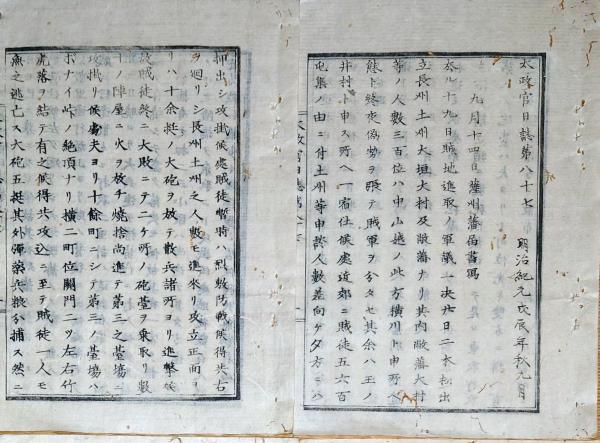 太政官日誌第八十七 明治紀元戊辰年秋九月
九月十四日薩州藩届書寫
去ル十九日賊地進取ノ軍議一決廿日二本松出
立長州土州大垣大村及敝藩ナリ其内敝藩大村
等ノ人數三百位ハ中山越ノ此方横川ト申所ヘ
陣ト終夜偽勢ヲ張テ賊軍ヲ分タセ其余ハ玉ノ
井村ト申ス所ヘ一宿仕候處近郊ニ賊徒五六百
屯集ノ由ニ付土州等申談人數差向ケ夕方ニハ
押出シ攻掛候處賊徒暫時ハ烈敷防戰候得共右
ヲ廻リシ長州土州之人數モ進來リ攻立正面ヨ
リハ十余挺ノ大砲ヲ放テ散兵諸所ヨリ進撃候
故賊徒終ニ大敗ニテ二ケ所ノ砲臺ヲ乗取リ數
ノ陣屋ニ火ヲ放チ燒捨尚進テ第三之臺場ニ
攻掛リ候處夫ヨリ十餘町ニシテ第三ノ臺場ハ
ボナイ峠ノ絶頂ナリ横二町位關門二ツ左右竹
虎落ヲ結ヒ有之候得共攻込ミ至テ賊徒一人モ
無之逃亡ス大砲五挺其外彈藥兵粮分捕ス然ニ